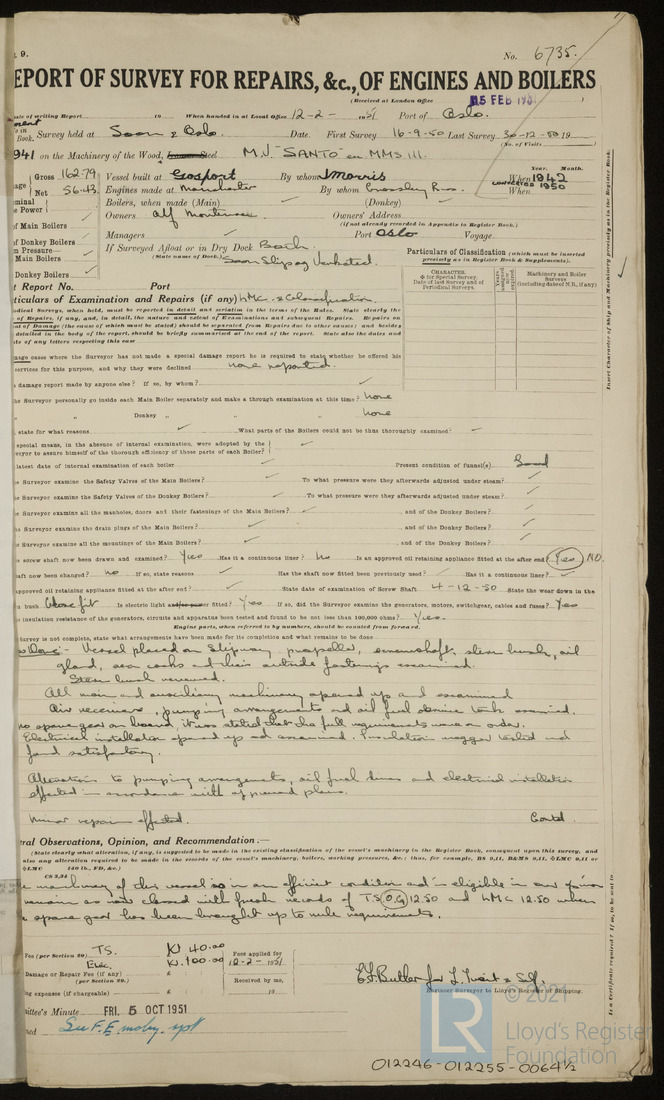 . 9.
No. 6735.
EPORT OF SURVEY FOR REPAIRS, &c., OF ENGINES AND BOILERS
(Received at London Office 15 FEB 195 )
ate of writing Report 19 When handed in at Local Office 12-2- 1951 Port of Oslo.
Book. Survey held at Soon & Oslo. Date. First Survey 16-9-50 Last Survey 30-12-50 19
(No. of Visits )
941 on the Machinery of the Wood, Steel M.V. "SANTO" ex MMS 111.
Gross 162.79 Vessel built at Gosport By whom Morris When 1942
Year. Month.
Net 56.43 Engines made at Manchester By whom Crossley Bros. When CONVERTED 1950
Boilers, when made (Main) (Donkey)
Owners Alf Owners' Address
(if not already recorded in Appendix to Register Book.)
Managers Port Oslo Voyage
If Surveyed Afloat or in Dry Dock Both
(State name of Dock.) Soon Slip og Verksted.
e Power }
of Main Boilers
of Donkey Boilers
m Pressure—
Main Boilers
Donkey Boilers
Particulars of Classification (which must be inserted precisely as in Register Book & Supplements).
CHARACTER. for Special Survey. Date of last Survey and of Periodical Surveys.
Machinery and Boiler Surveys (including date of N.B., if any)
Insert Character of Ship and Machinery precisely as in the Register Book.
t Report No. Port
ticulars of Examination and Repairs (if any) LMC. & Classification.
dical Surveys, when held, must be reported in detail and seriatim in the terms of the Rules. State clearly the
of Repairs, if any, and, in detail, the nature and extent of Examinations and subsequent Repairs. Repairs on
nt of Damage (the cause of which must be stated) should be separated from Repairs due to other causes; and besides
detailed in the body of the report, should be briefly summarised at the end of the report. State also the dates and
ls of any letters respecting this case
mage cases where the Surveyor has not made a special damage report he is required to state whether he offered his
services for this purpose, and why they were declined none reported.
damage report made by anyone else? If so, by whom?
he Surveyor personally go inside each Main Boiler separately and make a through examination at this time? none
" Donkey " " none
state for what reasons What parts of the Boilers could not be thus thoroughly examined?
special means, in the absence of internal examination, were adopted by the
veyor to assure himself of the thorough efficiency of those parts of each Boiler?
latest date of internal examination of each boiler Present condition of funnel(s). Good
e Surveyor examine the Safety Valves of the Main Boilers? To what pressure were they afterwards adjusted under steam?
e Surveyor examine the Safety Valves of the Donkey Boilers? To what pressure were they afterwards adjusted under steam?
e Surveyor examine all the manholes, doors and their fastenings of the Main Boilers? and of the Donkey Boilers?
he Surveyor examine the drain plugs of the Main Boilers? and of the Donkey Boilers?
he Surveyor examine all the mountings of the Main Boilers? and of the Donkey Boilers?
e screw shaft now been drawn and examined? Yes Has it a continuous liner? No Is an approved oil retaining appliance fitted at the after end? Yes NO.
aft now been changed? no If so, state reasons Has the shaft now fitted been previously used? Has it a continuous liner?
approved oil retaining appliance fitted at the after end? State date of examination of Screw Shaft 4-12-50 State the wear down in the
n bush Close fit Is electric light fitted? Yes If so, did the Surveyor examine the generators, motors, switchgear, cables and fuses? Yes
e insulation resistance of the generators, circuits and apparatus been tested and found to be not less than 100,000 ohms? Yes.
Engine parts, when referred to by numbers, should be counted from forward.
Survey is not complete, state what arrangements have been made for its completion and what remains to be done
Done:- Vessel placed on Slipway propeller, screwshaft, stern bush, oil
gland, sea cocks and their outside fastenings examined.
Stern bush renewed.
All main and auxiliary machinery opened up and examined
Air receivers, pumping arrangements and oil fuel service tank examined.
no spare gear on board, it was stated that the full requirements were on order.
Electrical installation opened up and examined. Insulation megger tested and
found satisfactory.
Alteration to pumping arrangements, oil fuel lines and electrical installation
effected in accordance with approved plans.
Minor repairs effected. Contd.
ral Observations, Opinion, and Recommendation :—
(State clearly what alteration, if any, is suggested to be made in the existing classification of the vessel's machinery in the Register Book, consequent upon this survey, and
also any alteration required to be made in the records of the vessel's machinery, boilers, working pressures, &c.; thus, for example, BS 9,11, B&MS 9,11, LMC 9,11 or
LMC 140 lb., FD, &c.)
CS 2,34
e machinery of this vessel is in an efficient condition and is eligible in our opinion
remain as now classed with fresh records of TS (O.G) 12.50 and LMC 12.50 when
e spare gear has been brought up to rule requirements.
Fee (per Section 29) TS. Kr 40.00 Fees applied for
Elec. Kr. 100.00 12-2-1951
Damage or Repair Fee (if any) £
(per Section 29.) Received by me,
ng expenses (if chargeable) £ 19
C. F. Butler for L. & Self.
Engineer Surveyor to Lloyd's Register of Shipping.
ittee's Minute FRI. 5 OCT 1951
ned See F.E. rpt
Is a Certificate required? If so, to be sent to
© 2021
LR
Lloyd's Register
Foundation
012246-012255-0064½